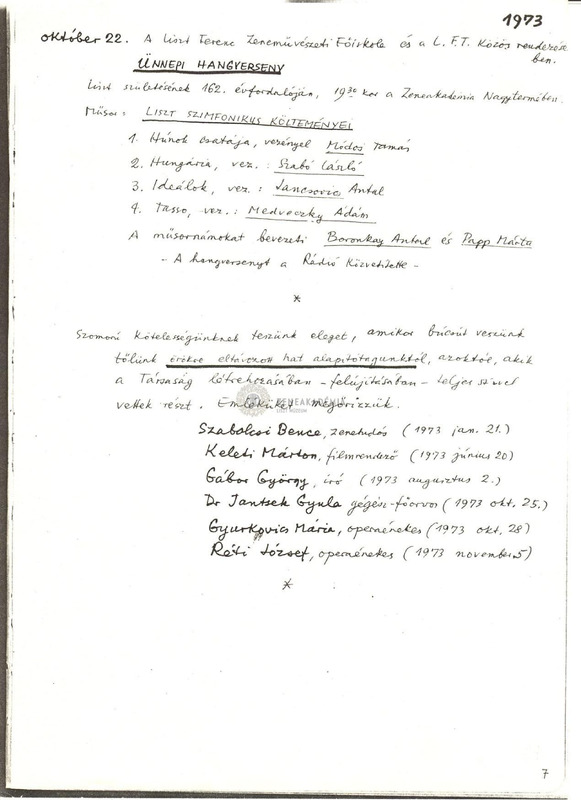 1973
Október 22. A Liszt Ferenc Zeneművészeti Főiskola és a L.F.T. közös rendezésé
ben.
ÜNNEPI HANGVERSENY
Liszt születésének 162. évfordulóján, 19 30 kor a Zeneakadémia Nagytermében.
Műsor: LISZT SZIMFONIKUS KÖLTEMÉNYEI
1. Húnok csatája, vezényel Módos Tamás
2. Hungária, vez.: Szabó László
3. Ideálok, vez.: Jancsovics Antal
4. Tasso, vez.: Medveczky Ádám
A műsorszámokat bevezeti Boronkay Antal és Papp Márta
- A hangversenyt a Rádió közvetítette -
*
Szomorú kötelességünknek teszünk eleget, amikor búcsút veszünk
tőlünk örökre eltávozott hat alapítótagunktól, azoktól, akik
a Társaság létrehozásában - felújításában - teljes szívvel
vettek részt. Emléküket megőrizzük.
ZENEAKADÉMIA
LISZT MÚZEUM
Szabolcsi Bence, zenetudós (1973 jan. 21.)
Keleti Márton, filmrendező (1973 június 20)
Gábor György, író (1973 augusztus 2.)
Dr Jantsek Gyula gégész-főorvos (1973 okt. 25.)
Gyurkovics Mária, operaénekes (1973 okt. 28)
Réti József, operaénekes (1973 november 5)
*
7